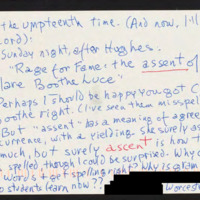 the umpteenth time. (And now, I'll
Lord):
Sunday night, after Hughes.
"Rage for Fame: the assent of
lare Boothe Luce"
Perhaps I should be happy you got C
Boothe right. (I've seen them misspell
But "assent" has a meaning of agree
currence, with a yielding. She surely as
much, but surely ascent is how t
spelled, though I could be surprised. Why c
words + get spelling right? Why is
o students learn now??
Worcest